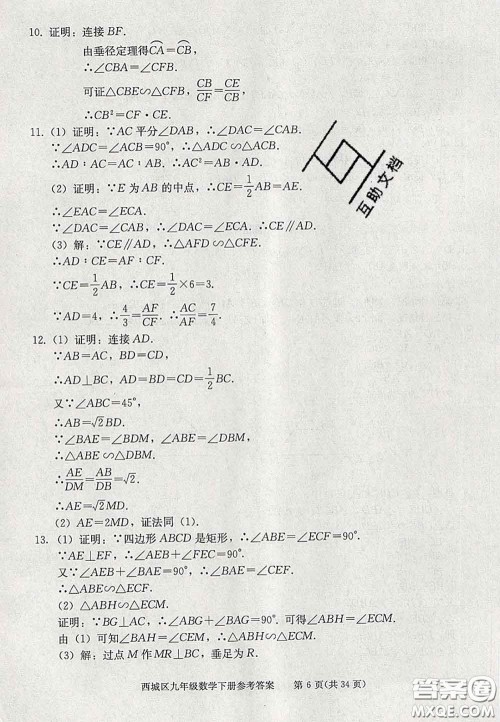 10. 证明：连接 BF.
由垂径定理得 $\overset{\frown}{CA}=\overset{\frown}{CB}$,
∴∠CBA=∠CFA.
可证△CBE∽△CFB, $\frac{CB}{CF}=\frac{CE}{CB}$
∴CB²=CF·CE.
11. (1) 证明：∵AC 平分∠DAB, ∴∠DAC=∠CAB.
∵∠ADC=∠ACB=90°, ∴△ADC∽△ACB.
∴AD∶AC=AC∶AB. ∴AC²=AB·AD.
(2) 证明：∵E 为 AB 的中点, ∴CE=$\frac{1}{2}$AB=AE.
∴∠EAC=∠ECA.
∵∠DAC=∠CAB, ∴∠DAC=∠ECA. ∴CE∥AD.
(3) 解：∵CE∥AD, ∴△AFD∽△CFE.
∴AD∶CE=AF∶CF.
∵CE=$\frac{1}{2}$AB, ∴CE=$\frac{1}{2}$×6=3.
∵AD=4, ∴$\frac{4}{3}=\frac{AF}{CF}$. ∴$\frac{AC}{AF}=\frac{7}{4}$.
12. (1) 证明：连接 AD.
∵AB=AC, BD=CD,
∴AD⊥BC, AD=BD=CD=$\frac{1}{2}$BC.
又∵∠ABC=45°,
∴AB=$\sqrt{2}$BD.
∵∠BAE=∠BDM, ∠ABE=∠DBM,
∴△ABE∽△DBM.
∴$\frac{AE}{DM}=\frac{AB}{DB}=\sqrt{2}$.
∴AE=$\sqrt{2}$MD.
(2) AE=2MD, 证法同 (1).
13. (1) 证明：∵四边形 ABCD 是矩形, ∴∠ABE=∠ECF=90°.
∵AE⊥EF, ∴∠AEB+∠FEC=90°.
又∵∠AEB+∠BAE=90°, ∴∠BAE=∠CEF.
∴△ABE∽△ECF.
(2) △ABH∽△ECM.
证明：∵BG⊥AC, ∴∠ABG+∠BAG=90°. 可得∠ABH=∠ECM.
由 (1) 可知∠BAH=∠CEM, ∴△ABH∽△ECM.
(3) 解：过点 M 作 MR⊥BC, 垂足为 R.
西城区九年级数学下册参考答案 第 6 页(共 34 页)
互助文档
答案圈
MXQE.COM